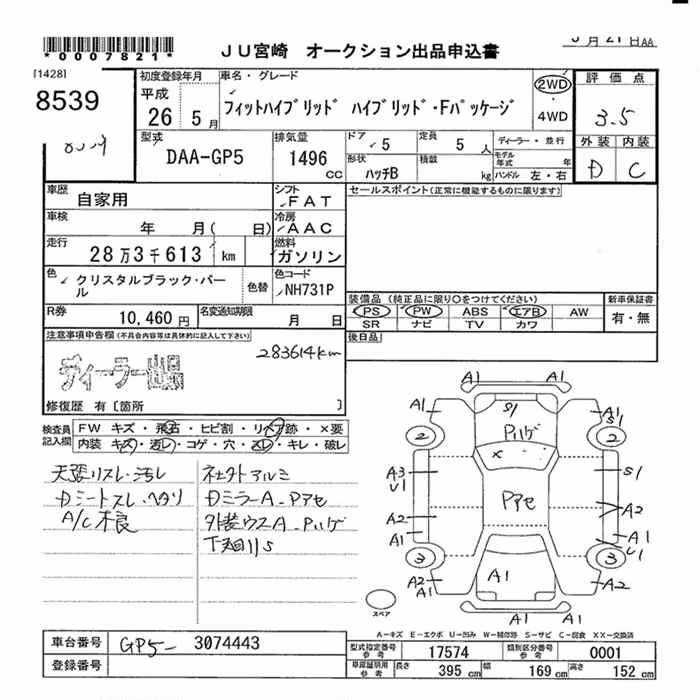 *0007821*
JU宮崎 オークション出品申込書
月21日AA
[1428]
8539
初度登録年月
平成
26 5月
車名・グレード
フィットハイブリッド ハイブリッド・Fパッケージ
2WD
・
4WD
評価点
3.5
外装 内装
D C
型式
DAA-GP5
排気量
1496
CC
ドア
5
定員
5人
形状
ハッチB
積載
kg
ディーラー・並行
モデル年式 年
ハンドル 左・右
車歴
自家用
シフト
FAT
セールスポイント(正常に機能するものに限ります)
車検
年 月( 日)
冷房
AAC
走行
28万3千613 km
燃料
ガソリン
色
クリスタルブラック・パール
色替
色コード
NH731P
R券
10,460円
名変通知期限
月 日
装備品(純正品に限り○をつけてください)
PS PW ABS エアB AW
SR ナビ TV カワ
新車保証書
有・無
後日品
注意事項申告欄(不具合内容等は具体的に記入して下さい)
283614km
ディーラー出品
修復歴 有[箇所 ]
検査員記入欄
FW キズ・飛石・ヒビ割・リペア跡・×要
内装 キズ・汚レ・コゲ・穴・スレ・キレ・破レ
天張リスレ・汚レ
社外アルミ
Dシートスレ・ヘタリ
DミラーA-Pアセ
A/C不良
外装ウスA-Pハゲ
下廻りS
A1
A1 A1
S1 S1
Pハゲ
2 2
×
A3
U1
S1
Pアセ
A2 A2
A1 A1
U1
3 3
A2 A1 A2
A1
スペア
A-キズ E-エクボ U-凹み W-補修跡 S-サビ C-腐食 XX-交換済
車台番号
GP5- 3074443
登録番号
型式指定番号
参考
17574
類別区分番号
参考
0001
車庫証明用
参考
長さ 395 cm 幅 169 cm 高さ 152 cm